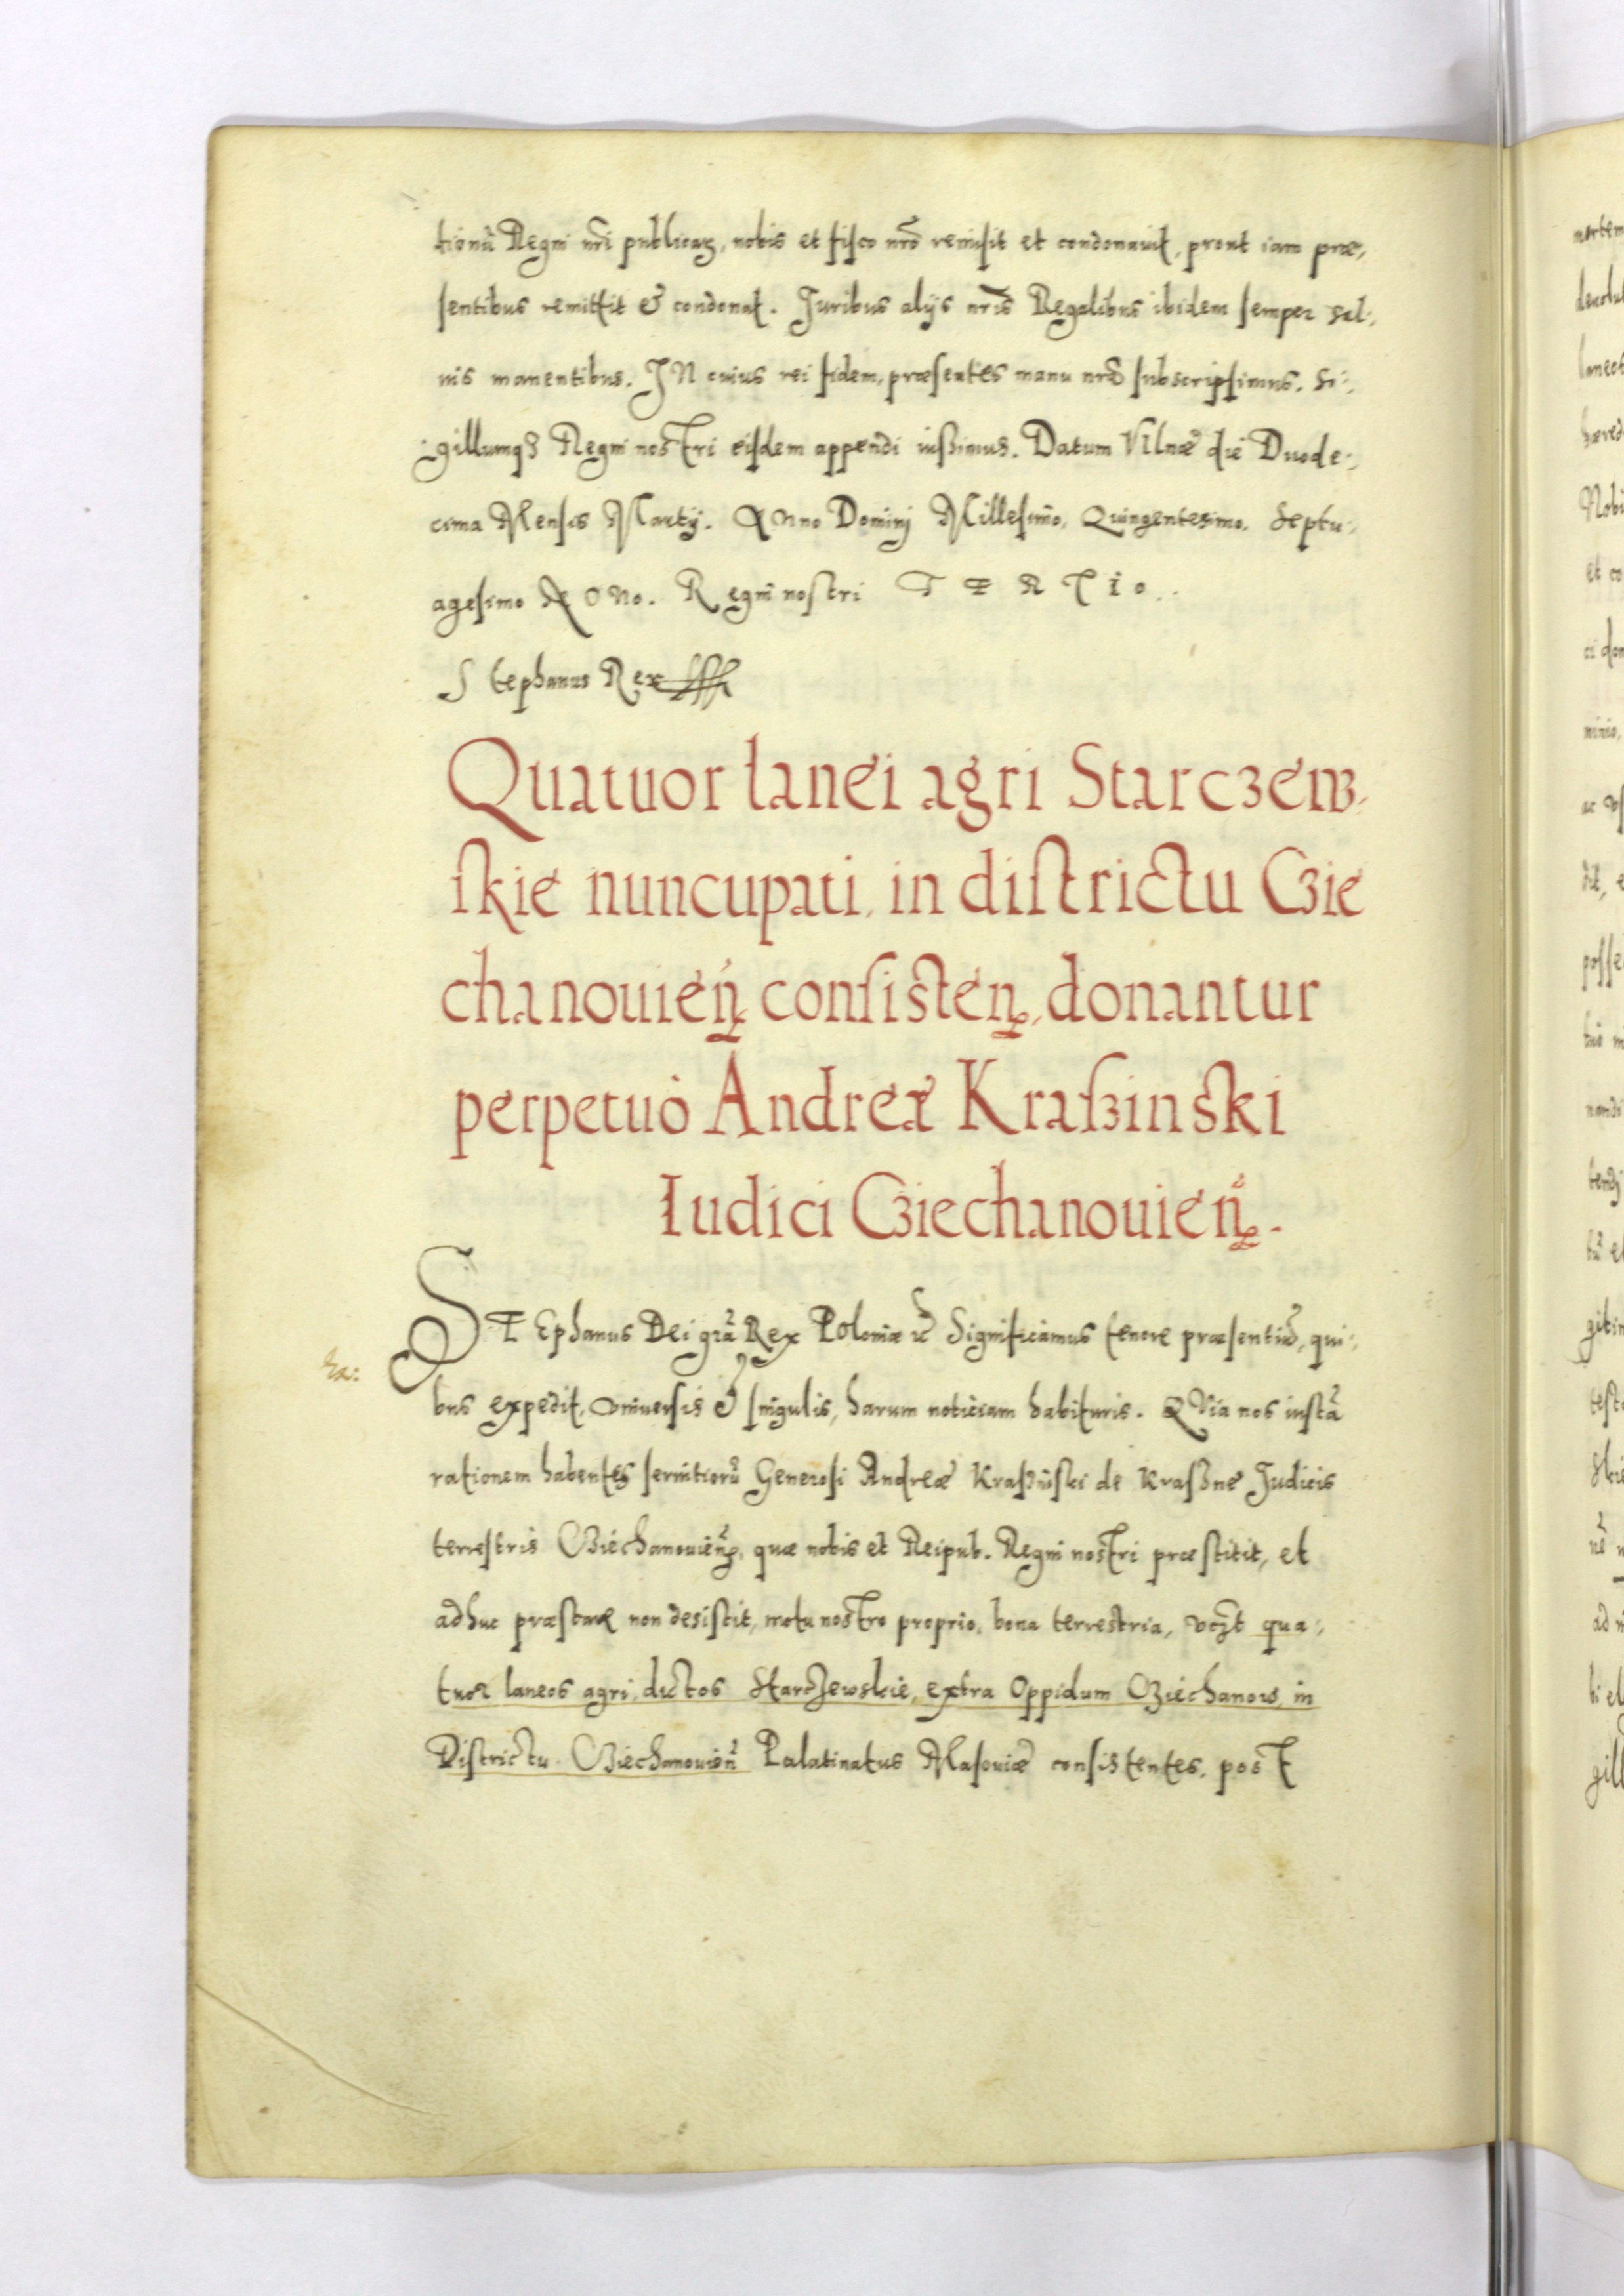 tionũ Regni nr̃i publicaꝝ, nobis et fisco nrõ remisit et condonauit, prout iam præ,
sentibus remittit & condonat. Juribus alijs nr̃is Regalibus ibidem semper sal,
uis manentibus. IN cuius rei fidem, præsentes manu nrã subscripsimus. Si,
gillumq3 Regni nostri eisdem appendi iussimus. Datum Vilnæ die Duode,
cima Mensis Martij. ANno Dominj Millesimo, Quingentesimo. Septu,
agesimo NONo. Regni nostri TERTIo..
Stephanus Rex
Quatuor lanei agri Starczew,
skie nuncupati, in districtu Czie
chanouieñ consisteñ, donantur
perpetuò Andreæ Kraßinski
Iudici Cziechanouieñ.
STEphanus Dei grã Rex Poloniæ ꝛc̃ Significamus tenore præsentiũ, qui,
bus expedit, vniuersis & singulis, harum noticiam habituris. QVia nos iustã
rationem habentes seruitiorũ Generosi Andreæ Kraßinski de Kraßne Judicis
terrestris Cziechanouieñ, quæ nobis et Reipub. Regni nostri præstitit, et
adhuc præstare non desistit, motu nostro proprio, bona terrestria, vcz̃t qua,
tuor laneos agri, dictos Starczewskie, extra Oppidum Cziechanow, in
Districtu Cziechanouieñ Palatinatus Masouiæ consistentes, post